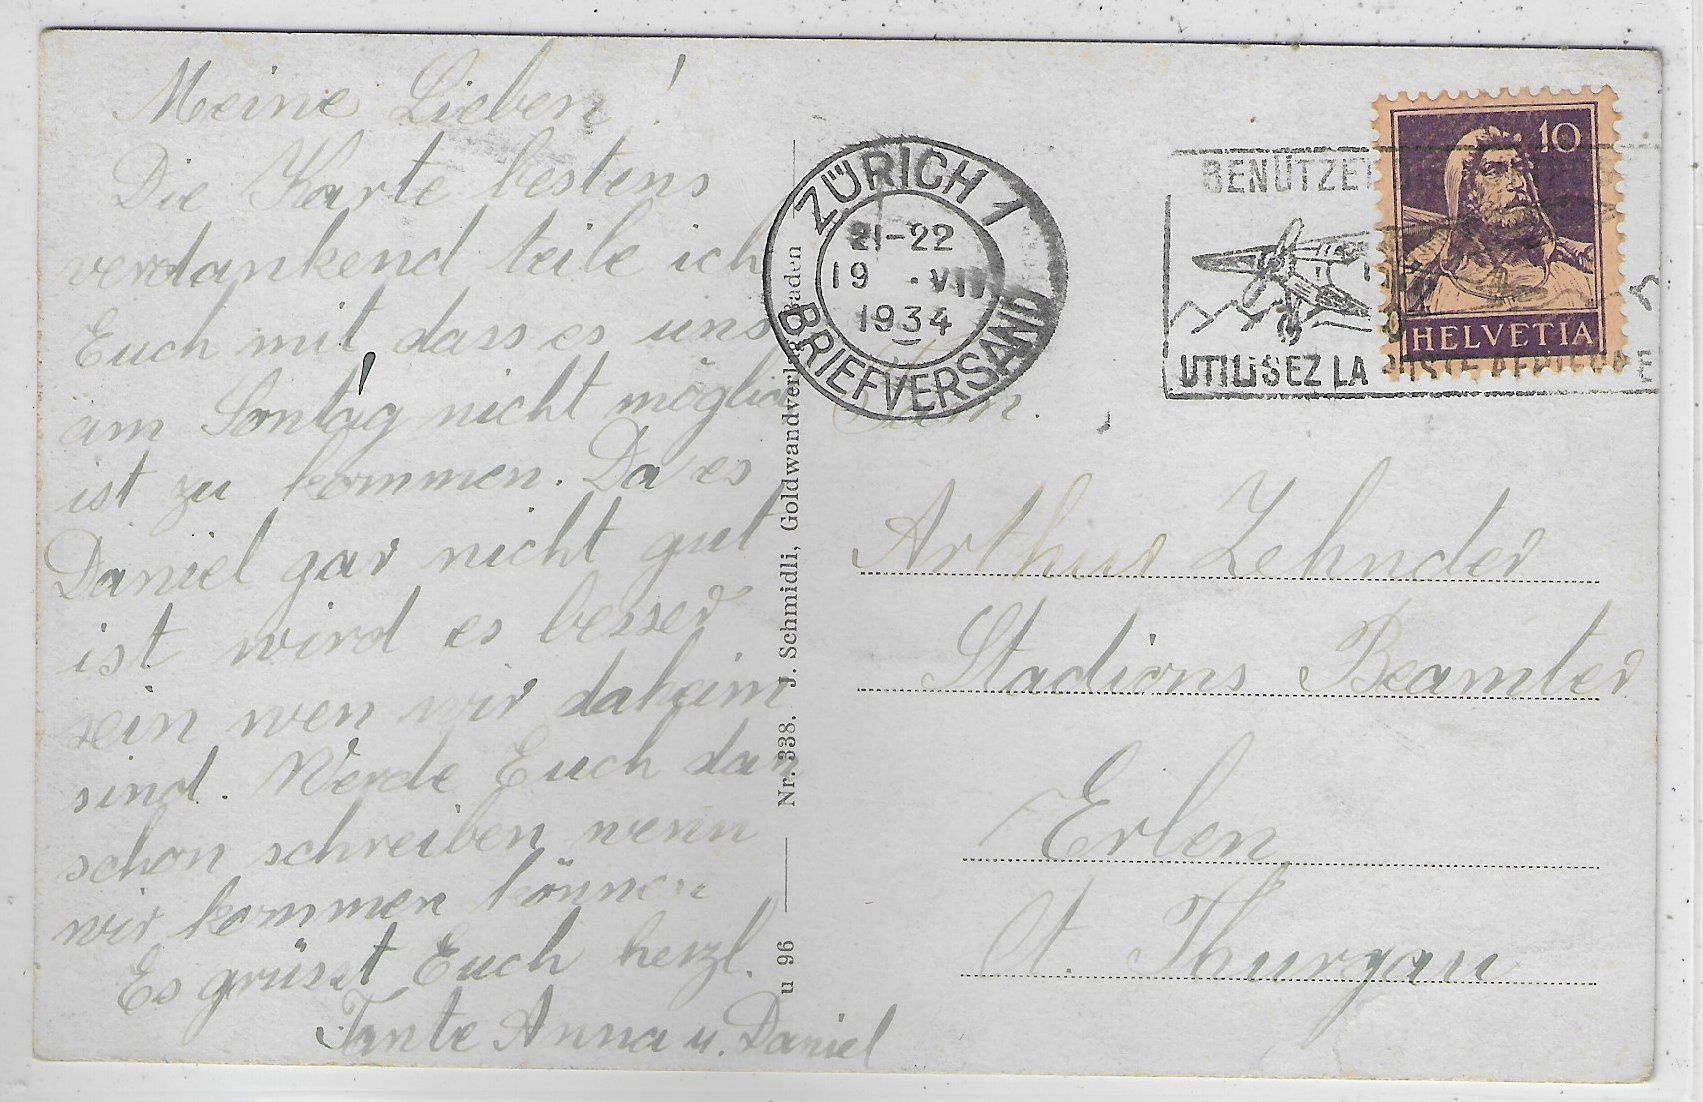 Meine Lieben!
Die Karte bestens
verdankend teile ich
Euch mit, dass es uns
am Sontag nicht möglich
ist zu kommen. Da es
Daniel gar nicht gut
ist wird es besser
sein wen wir daheim
sind. Werde Euch dan
schon schreiben wenn
wir kommen können
Es grüsst Euch herzl.
Tante Anna u. Daniel
u 96
Nr. 338. J. Schmidli, Goldwandverlag
ZÜRICH 1
21-22
19. VII
1934
BRIEFVERSAND
BENÜTZET
UTILISEZ LA POSTE AERIENNE
10
HELVETIA
Arthur Zehnder
Stadions Beamter
Erlen
Ct. Thurgau